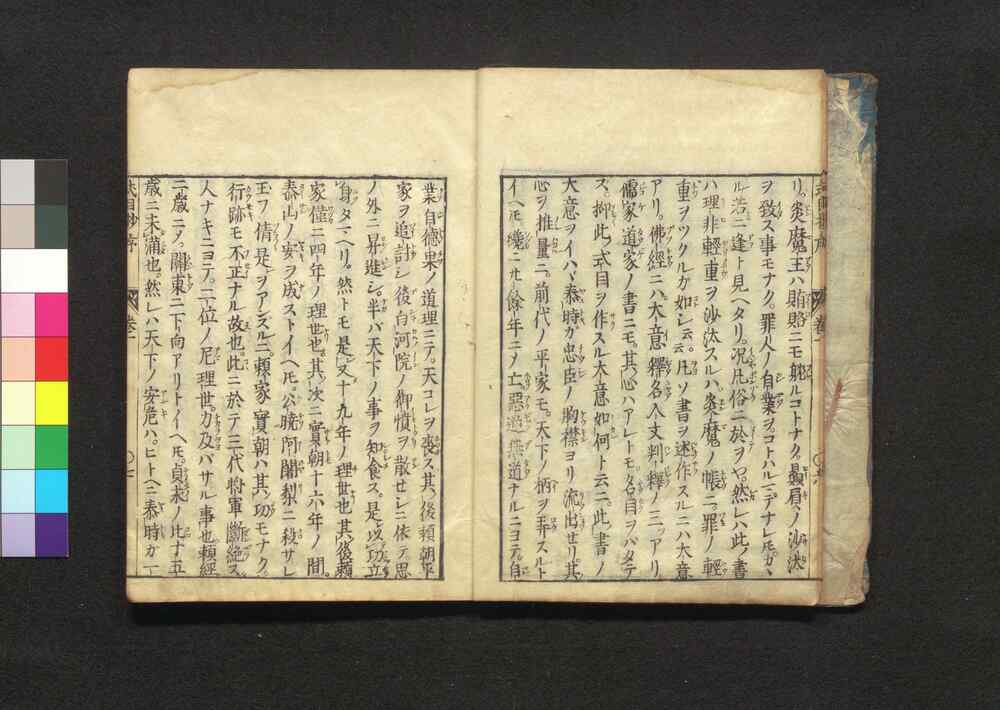 リ。炎魔王ハ賄賂ニモ耽ルコトナク。贔屓ノ沙汰
ヲ致ス事モナク。罪人ノ自業ヲコトハルニテナレ𪜈。カヽ
ル苦ニ逢ト見ヘタリ。況凡俗ニ於ヲヤ。然レハ此ノ書
ハ理非輕重ヲ沙汰スルハ。炎魔ノ帳ニ。罪ノ輕
重ヲツクルカ如シ云云。凡ソ書ヲ述作スルニハ大意
アリ。佛經ニハ大意釋名入文判釋ノ三ツアリ
儒家道家ノ書ニモ。其心ハアレトモ名目ヲハタテ
ス。抑此ノ式目ヲ作スル大意如何ト云ニ。此ノ書ノ
大意ヲイハヽ泰時カ忠臣ノ胸襟ヨリ流出セリ其
心ヲ推量ニ。前代ノ平家モ。天下ノ柄ヲ弄スルト
イヘ𪜈。纔ニ廿餘年ニノ亡。惡逆無道ナルニヨテ。自
業自德果ノ道理ニテ。天コレヲ喪ス其後頼朝平
家ヲ追討シ後白河院ノ御憤ヲ散セシニ依テ思
ノ外ニ昇進シ。半バ天下ノ事ヲ知食ス。是以功立
身タマヘリ。然トモ是又十九年ノ理世也其後頼
家僅ニ四年ノ理世也。其次ニ實朝十六年ノ間。
泰山ノ安ヲ成ストイヘ𪜈。公曉阿闍梨ニ殺サレ
玉フ倩是ヲアンスルニ。頼家實朝ハ其功モナク。
行跡モ不正ナル故也。此ニ於テ三代将軍断絶ス
人ナキニヨテ。二位ノ尼理世。力及バサル事也頼經
二歳ニノ。關東ニ下向アリトイヘ𪜈。貞永ノ比十五
歳ニ未滿也。然レハ天下ノ安危ハ。ヒトヘニ泰時カ一
巻一